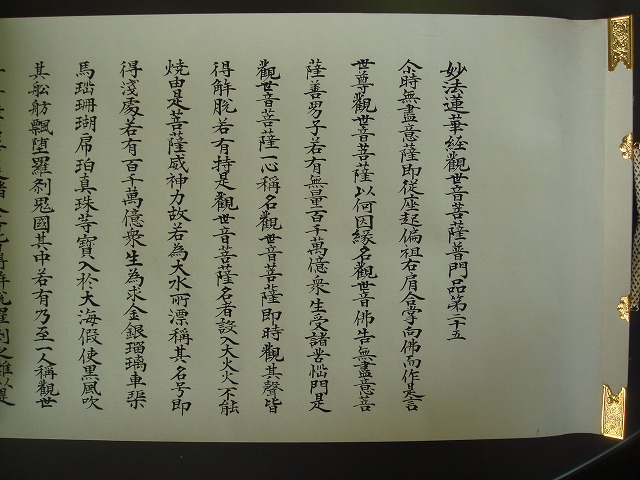 妙法蓮華経觀世音菩薩普門品第二十五
尒時無盡意薩即從座起偏袒右肩合掌向佛而作是言
世尊觀世音菩薩以何因縁名觀世音佛告無盡意菩
薩善男子若有無量百千萬億衆生受諸苦惱聞是
觀世音菩薩一心稱名觀世音菩薩即時觀其聲皆
得解脱若有持是觀世音菩薩名者設入大火火不能
燒由是菩薩威神力故若為大水所漂稱其名号即
得淺處若有百千萬億衆生為求金銀瑠璃車渠
馬瑙珊瑚琥珀真珠等寶入於大海假使黒風吹
其舩舫飄堕羅刹鬼國其中若有乃至一人稱觀世